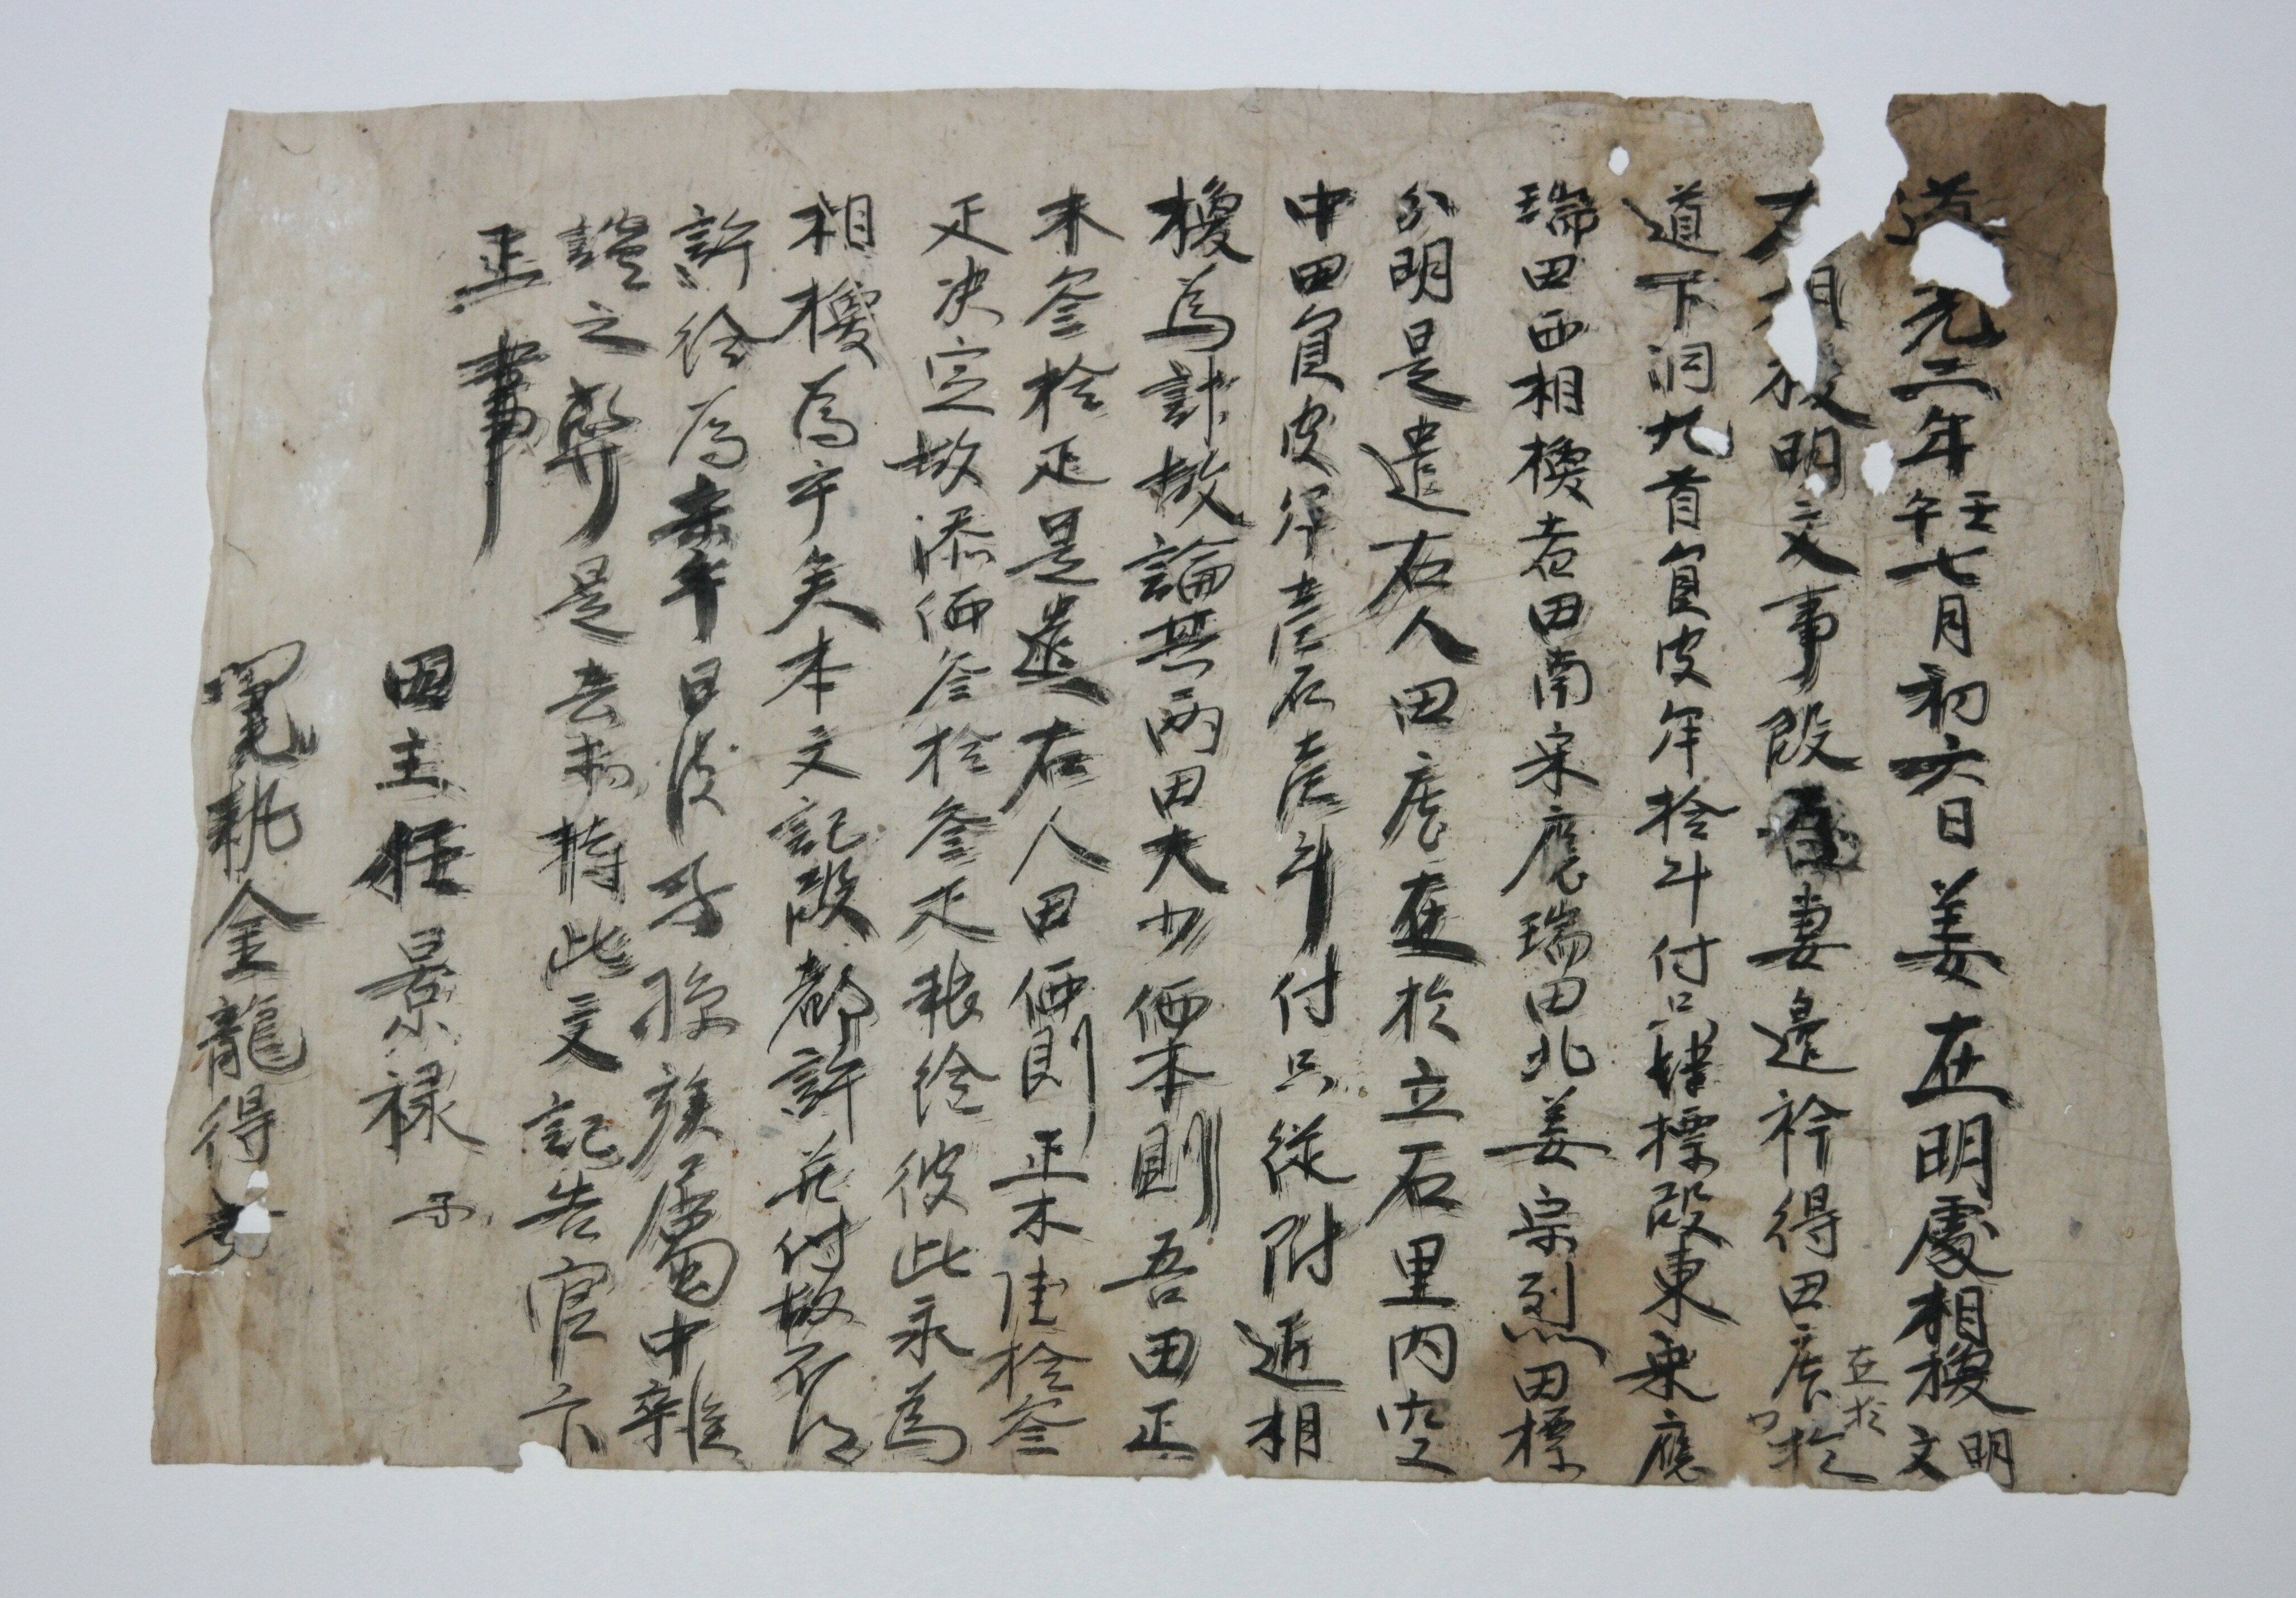 道光二年壬午七月初六日姜在明處相換明文
右相換明文事段吾妻邊衿得田庫在於
道下洞九首員皮牟拾斗付只肆標段東栗應
瑞田西相換者田南宋應瑞田北姜宗烈田標
分明是遣右人田庫在於立石里內
中田員皮牟壹石壹斗付只從附近相
換爲計故論其兩田大少価本則吾田正
木叁拾疋是遣右人田価則正木陸拾叁
疋決定故添価叁拾叁疋報給彼此永爲
相換爲乎矣本文記段都許幷付故不
許給爲去乎日後子孫族屬中雜
談之弊是去等持此文記告官卞
正事
田主任景祿
筆執金龍得